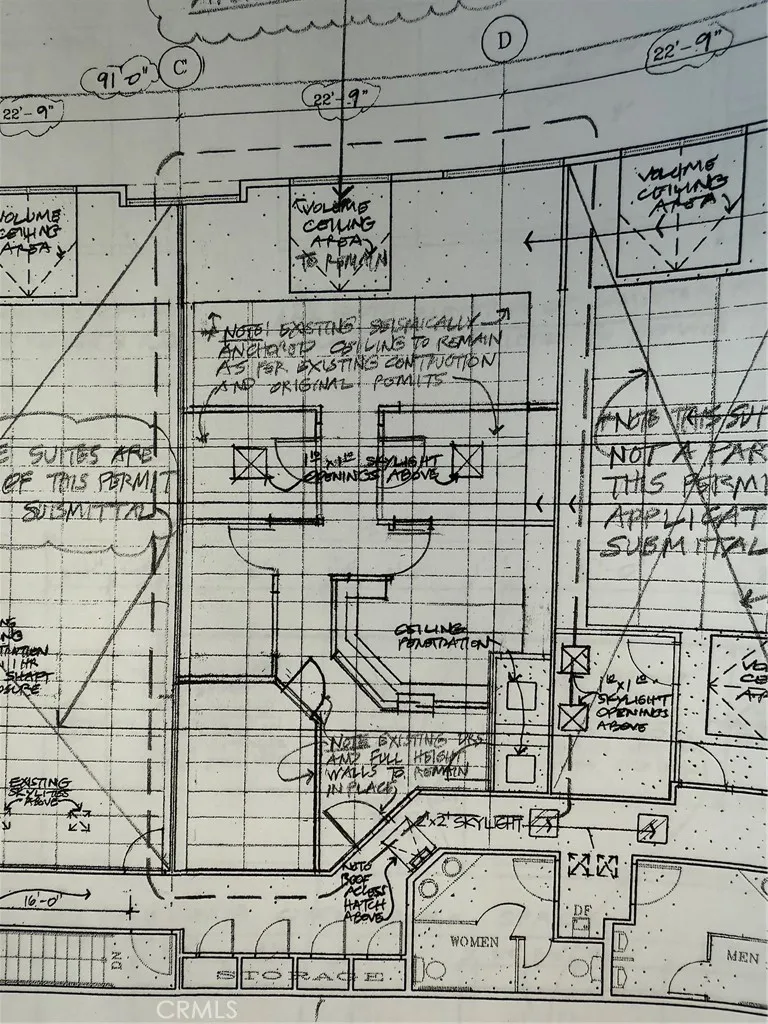 C
D
91'-0"
22'-9"
22'-9"
22'-9"
VOLUME
CEILING
AREA
VOLUME
CEILING
AREA
TO REMAIN
VOLUME
CEILING
AREA
NOTE: EXISTING SEISMICALLY
ANCHORED CEILING TO REMAIN
AS PER EXISTING CONTRUCTION
AND ORIGINAL PERMITS
E SUITES ARE
OF THIS PERMIT
SUBMITTAL
SKYLIGHT
OPENINGS ABOVE
NOTE THIS SUIT
NOT A PAR
THIS PERMI
APPLICAT
SUBMITTAL
CEILING
PENETRATION
SKYLIGHT
OPENINGS
ABOVE
1 HR
SHAFT
NOTE EXISTING
AND FULL HEIGHT
WALLS TO REMAIN
IN PLACE
EXISTING
SKYLITES
ABOVE
2'x2' SKYLIGHT
ROOF
ACCESS
HATCH
ABOVE
16'-0"
DN
STORAGE
WOMEN
DF
MEN
CRMLS